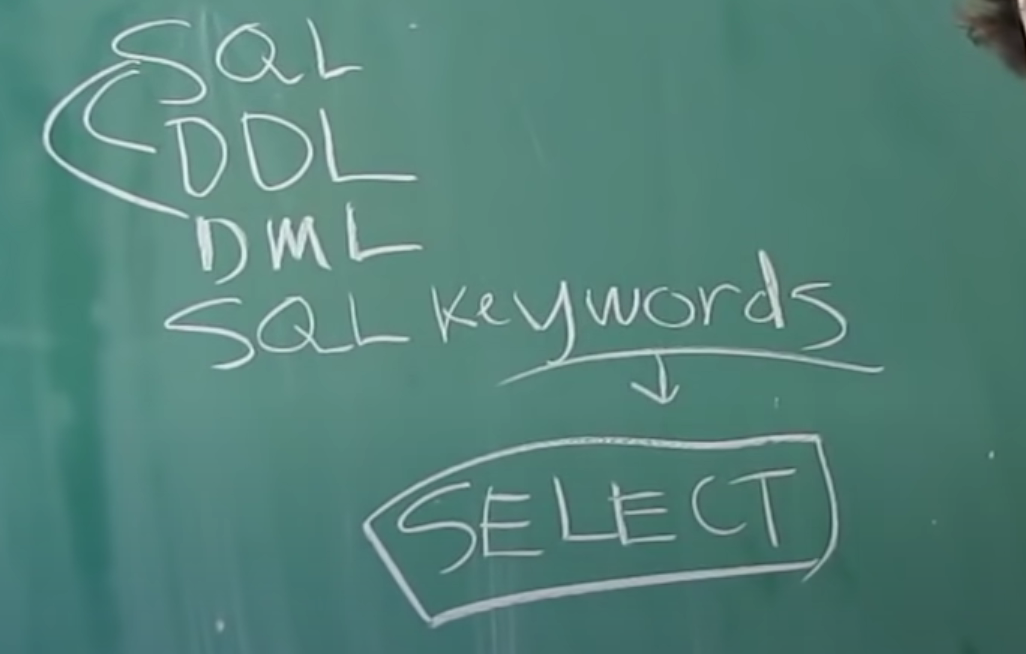 SQL
DDL
DML
SQL keywords
SELECT